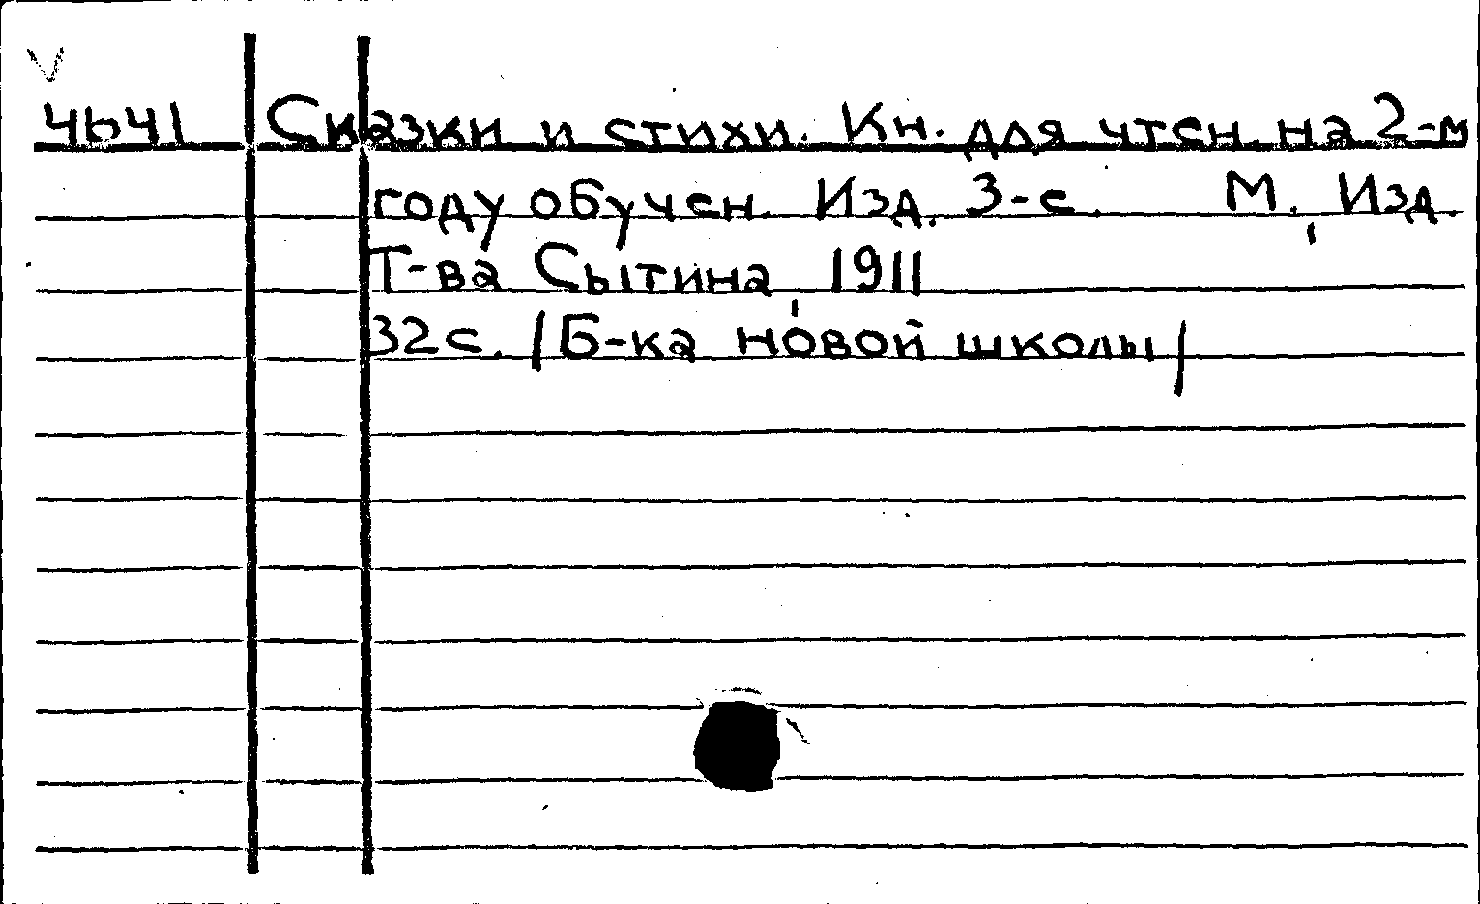 4641 Сказки и стихи. Кн. для чтен. на 2-м
году обучен. Изд. 3-е. М., Изд.
Т-ва Сытина, 1911
32с. /Б-ка новой школы/